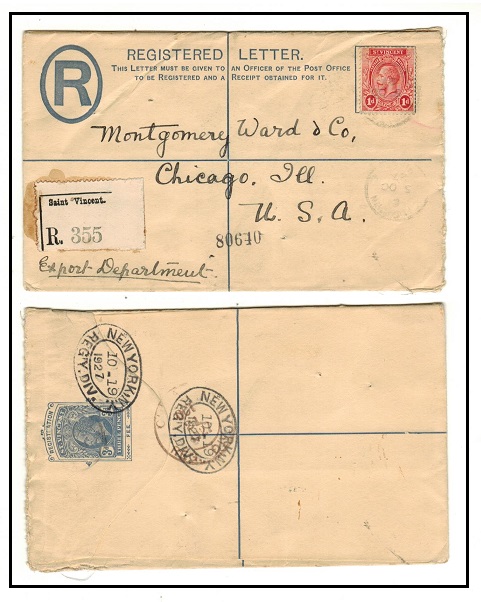 REGISTERED LETTER.
THIS LETTER MUST BE GIVEN TO AN OFFICER OF THE POST OFFICE
TO BE REGISTERED AND A RECEIPT OBTAINED FOR IT.
R
ST VINCENT
1d 1d
Montgomery Ward & Co,
Chicago, Ill.
U. S. A.
Saint Vincent.
R. 355
80640
Export Department
NEW YORK, N.Y.
10-19
1927
REG'Y. DIV.
NEW YORK, N.Y.
10-19
REG'Y. DIV.
REGISTRATION
THREE PENCE
FEE